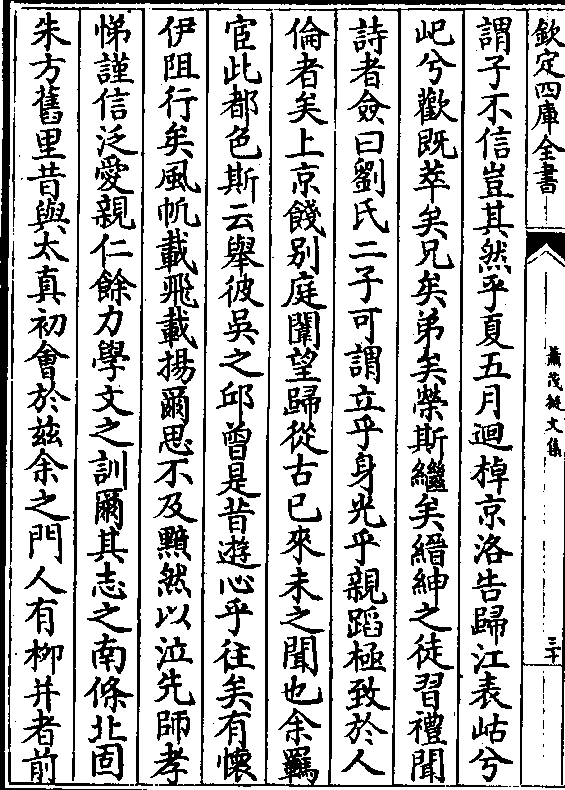 欽定四庫全書
蕭茂挺文集
三十
謂子不信豈其然乎夏五月迴棹京洛告歸江表岵兮
屺兮歡既萃矣兄矣弟矣榮斯繼矣縉紳之徒習禮聞
詩者僉曰劉氏二子可謂立乎身光乎親蹈極致於人
倫者矣上京餞别庭闈望歸從古已來未之聞也余羈
宦此都色斯云舉彼吳之邱曾是昔遊心乎往矣有懷
伊阻行矣風帆載飛載揚爾思不及黯然以泣先師孝
悌謹信泛愛親仁餘力學文之訓爾其志之南條北固
朱方舊里昔與太真初會於兹余之門人有柳并者前